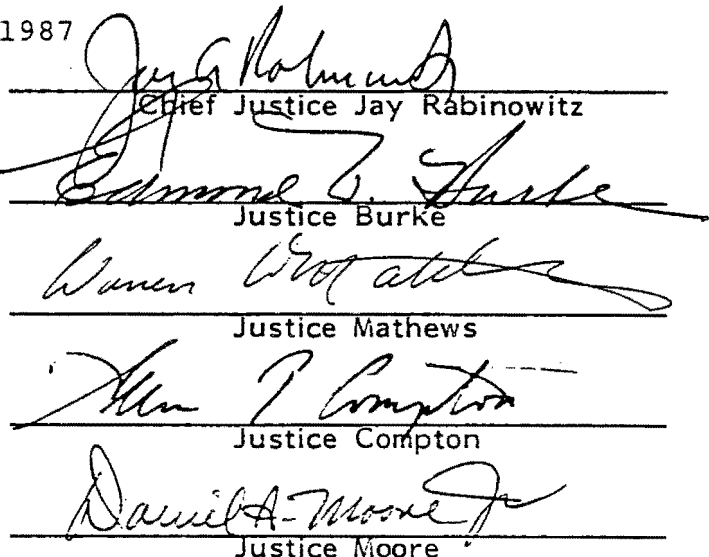 1987
Jay A Rabinowitz
Chief Justice Jay Rabinowitz
Edmond W. Burke
Justice Burke
Warren W Matthews
Justice Mathews
Allen T Compton
Justice Compton
Daniel A. Moore Jr
Justice Moore